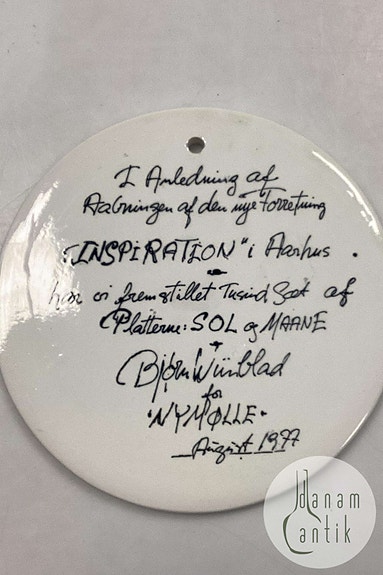 I Anledning af
Aabningen af den nye Forretning
"INSPIRATION" i Aarhus.
har vi fremstillet Tusind Sæt af
Platterne: SOL og MAANE
Bjørn Wiinblad
for
"NYMØLLE"
August 1977
danam
antik